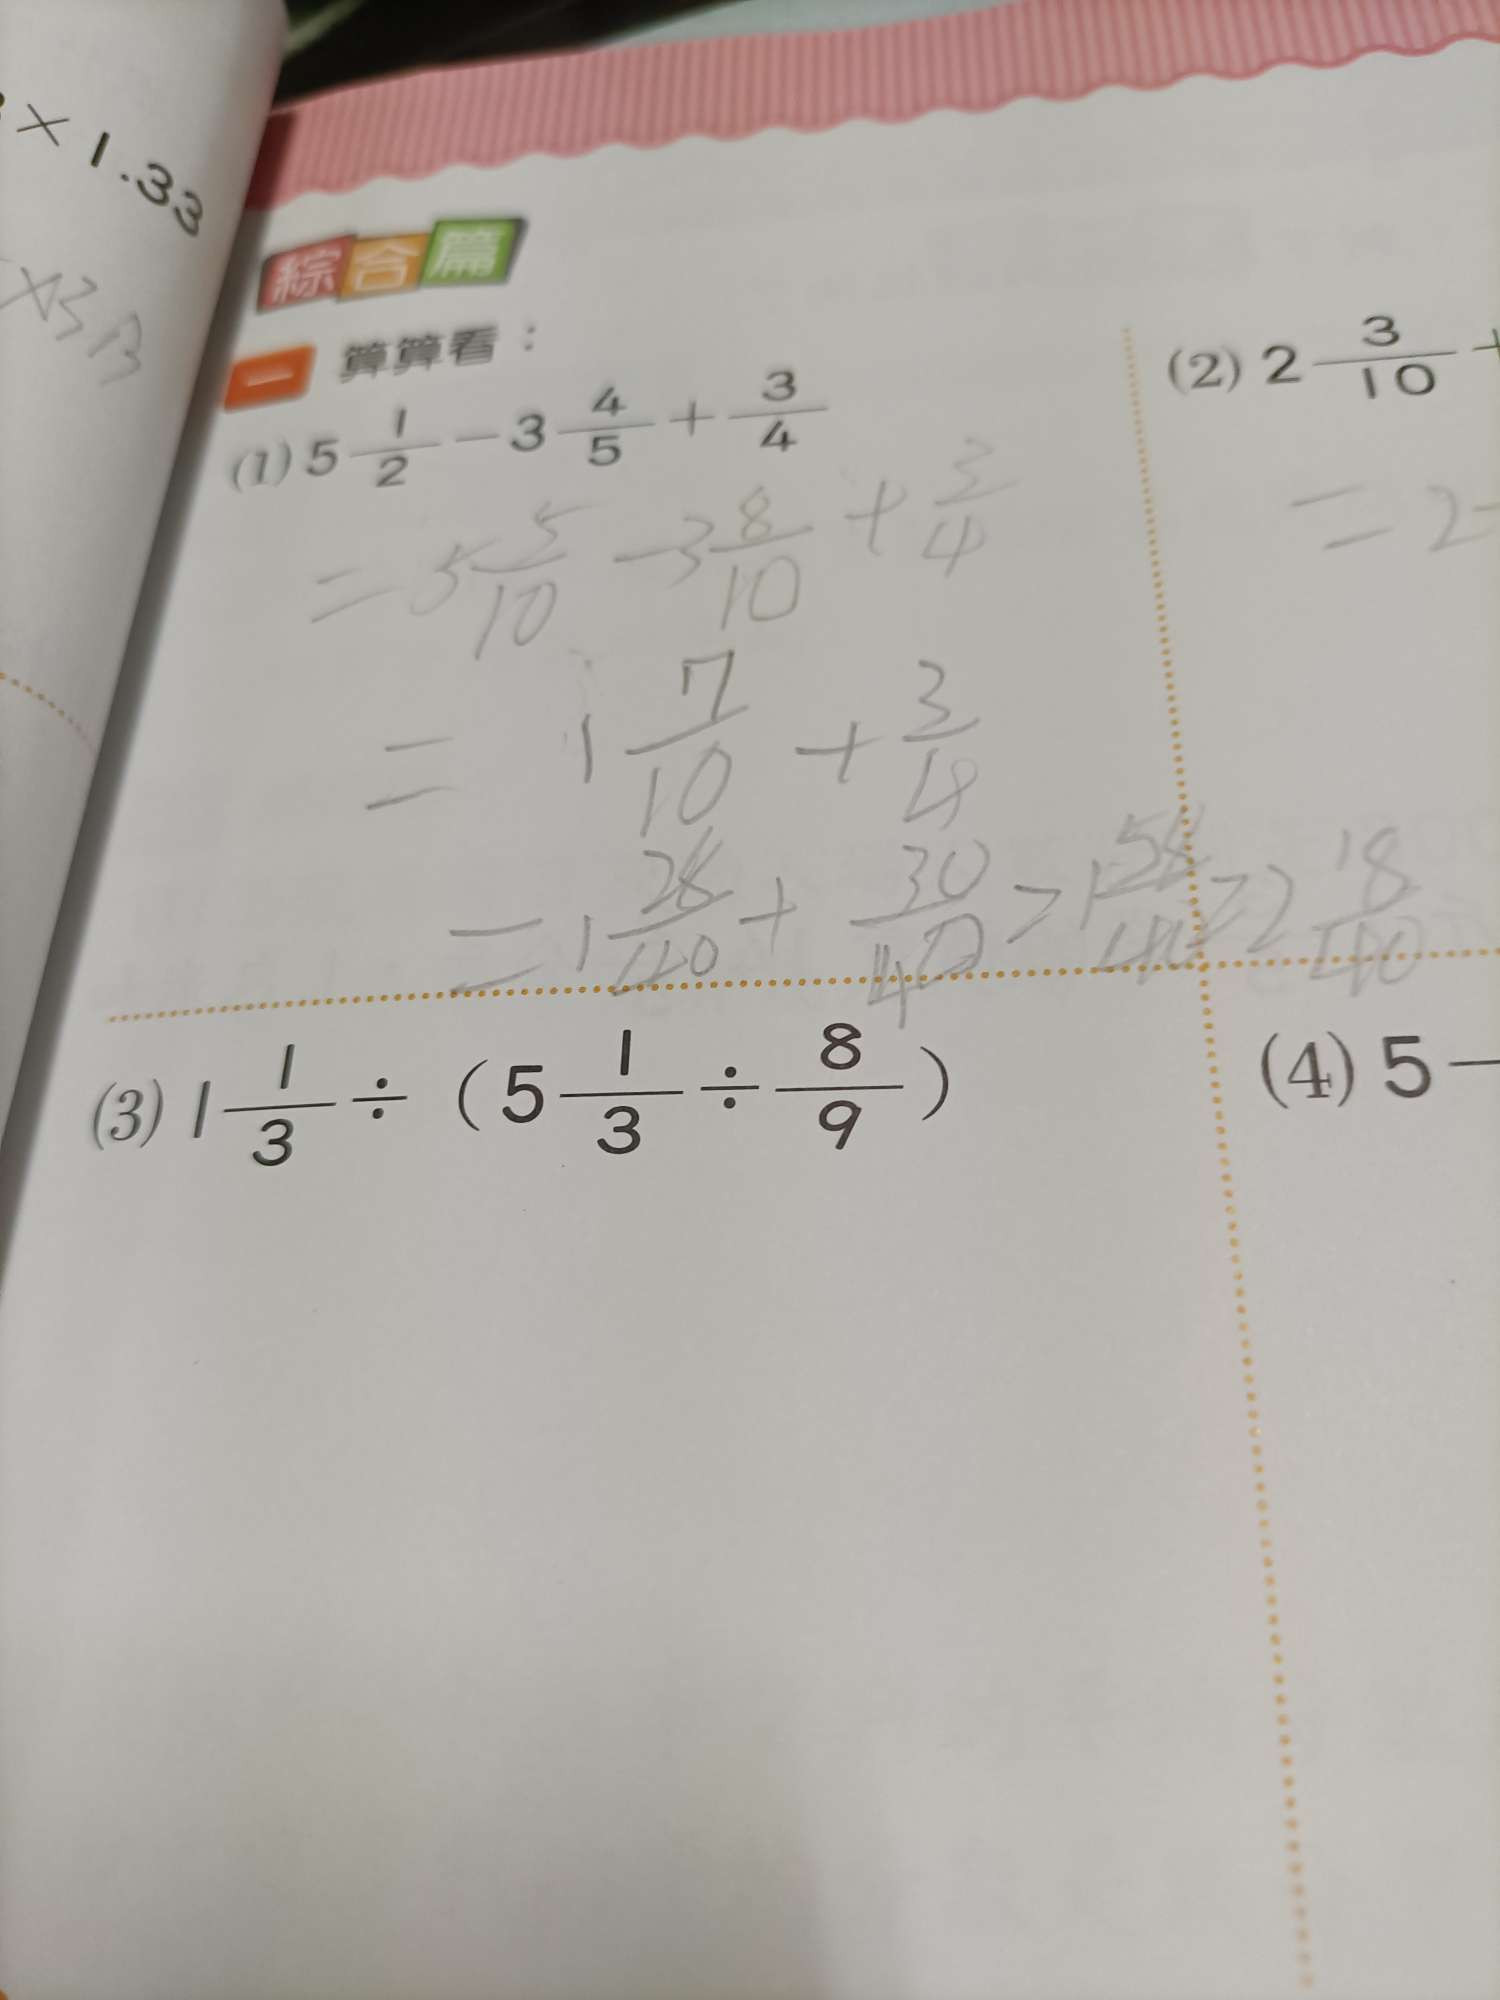 × 1.33
綜合篇
一 算算看：
(1) 5 1/2 − 3 4/5 + 3/4
= 5 5/10 − 3 8/10 + 3/4
= 1 7/10 + 3/4
= 1 28/40 + 30/40 = 1 58/40 = 2 18/40
(2) 2 3/10 +
= 2
(3) 1 1/3 ÷ (5 1/3 ÷ 8/9)
(4) 5 −